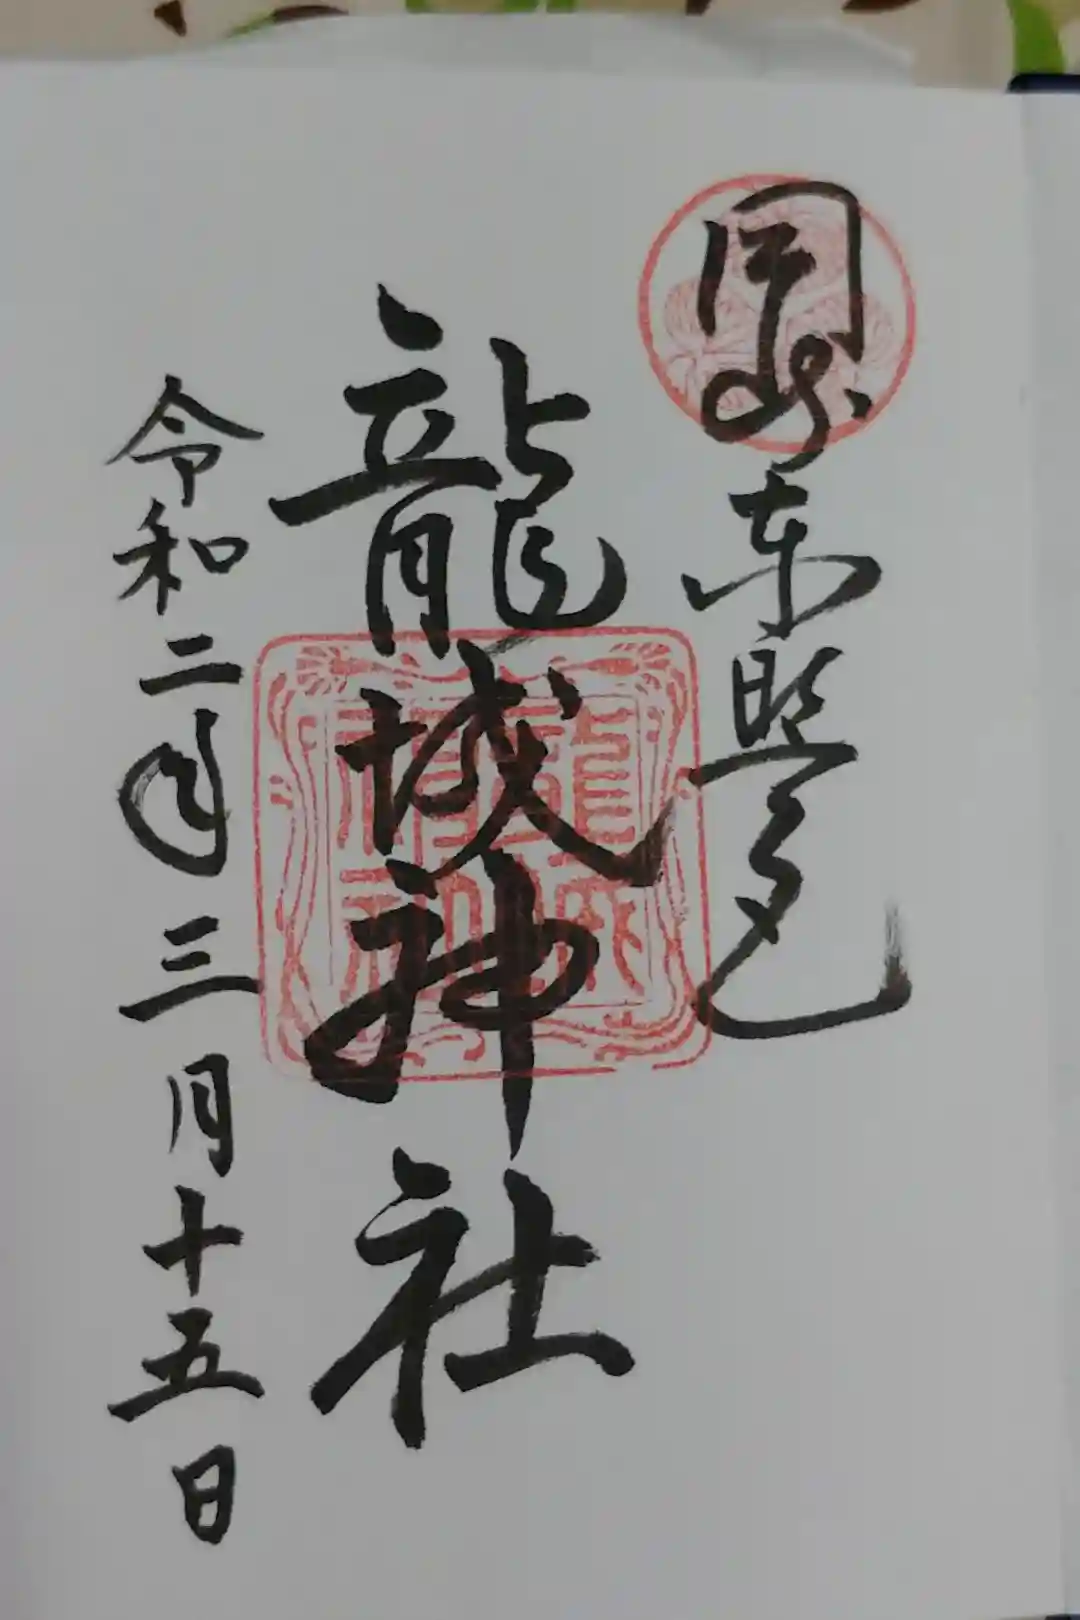 岡崎東照宮
龍城神社
令和二年三月十五日
龍城神社